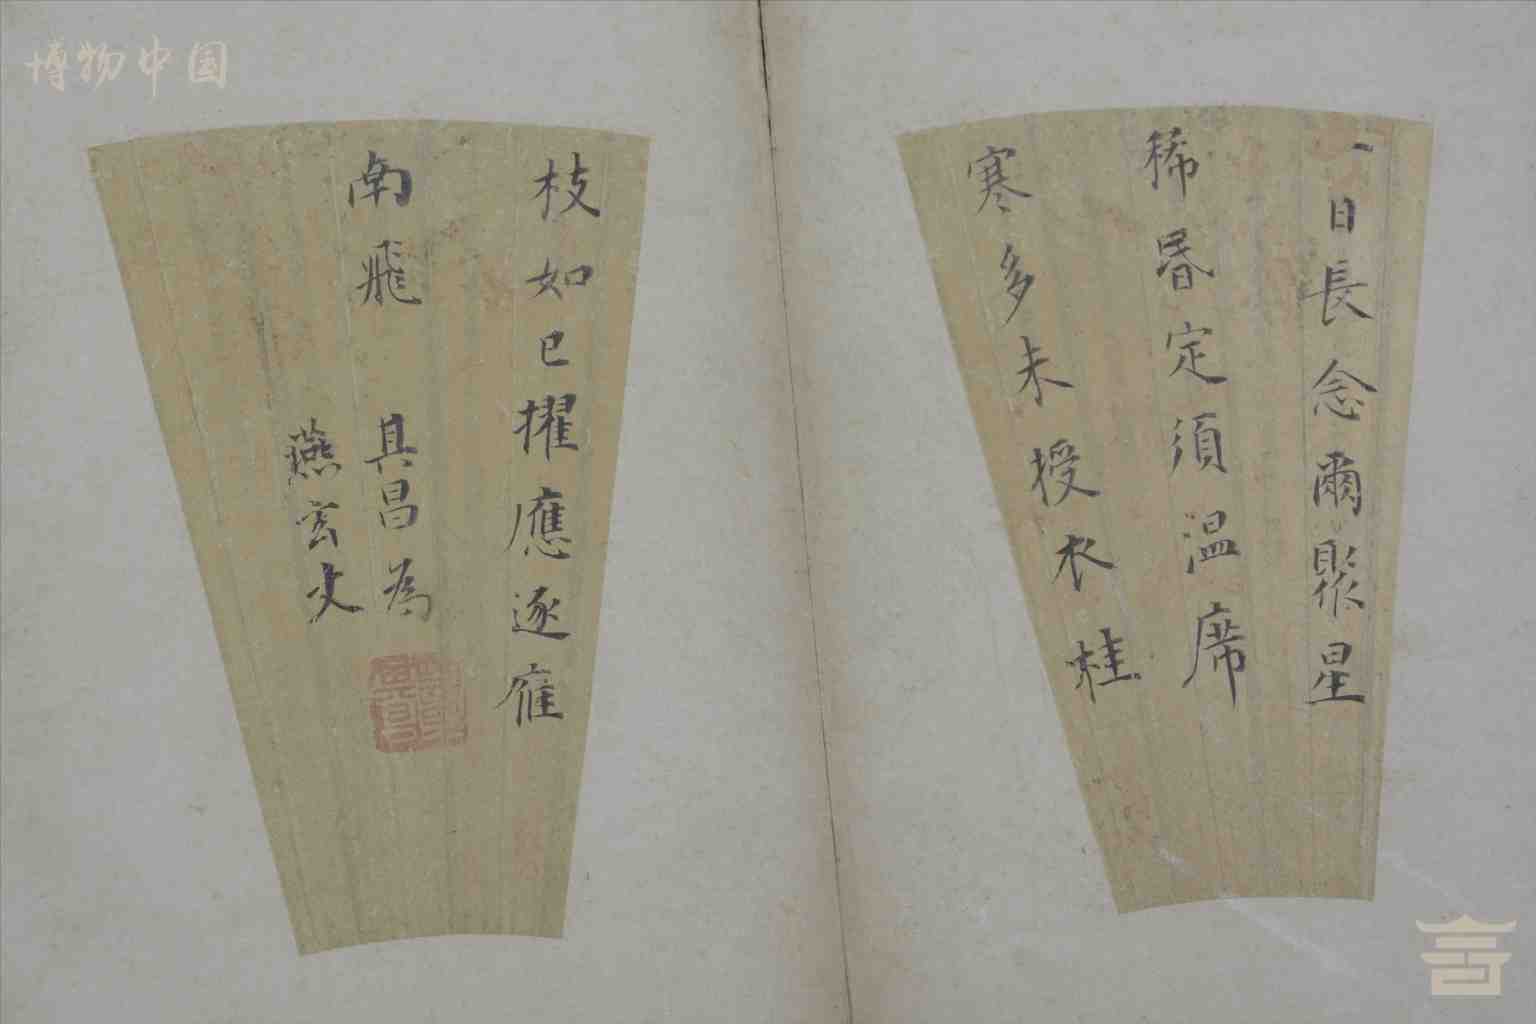 一日長念爾聚星
稀昏定須温席
寒多未授衣桂
枝如已擢應逐雁
南飛
具昌為
燕玄丈
博物中国